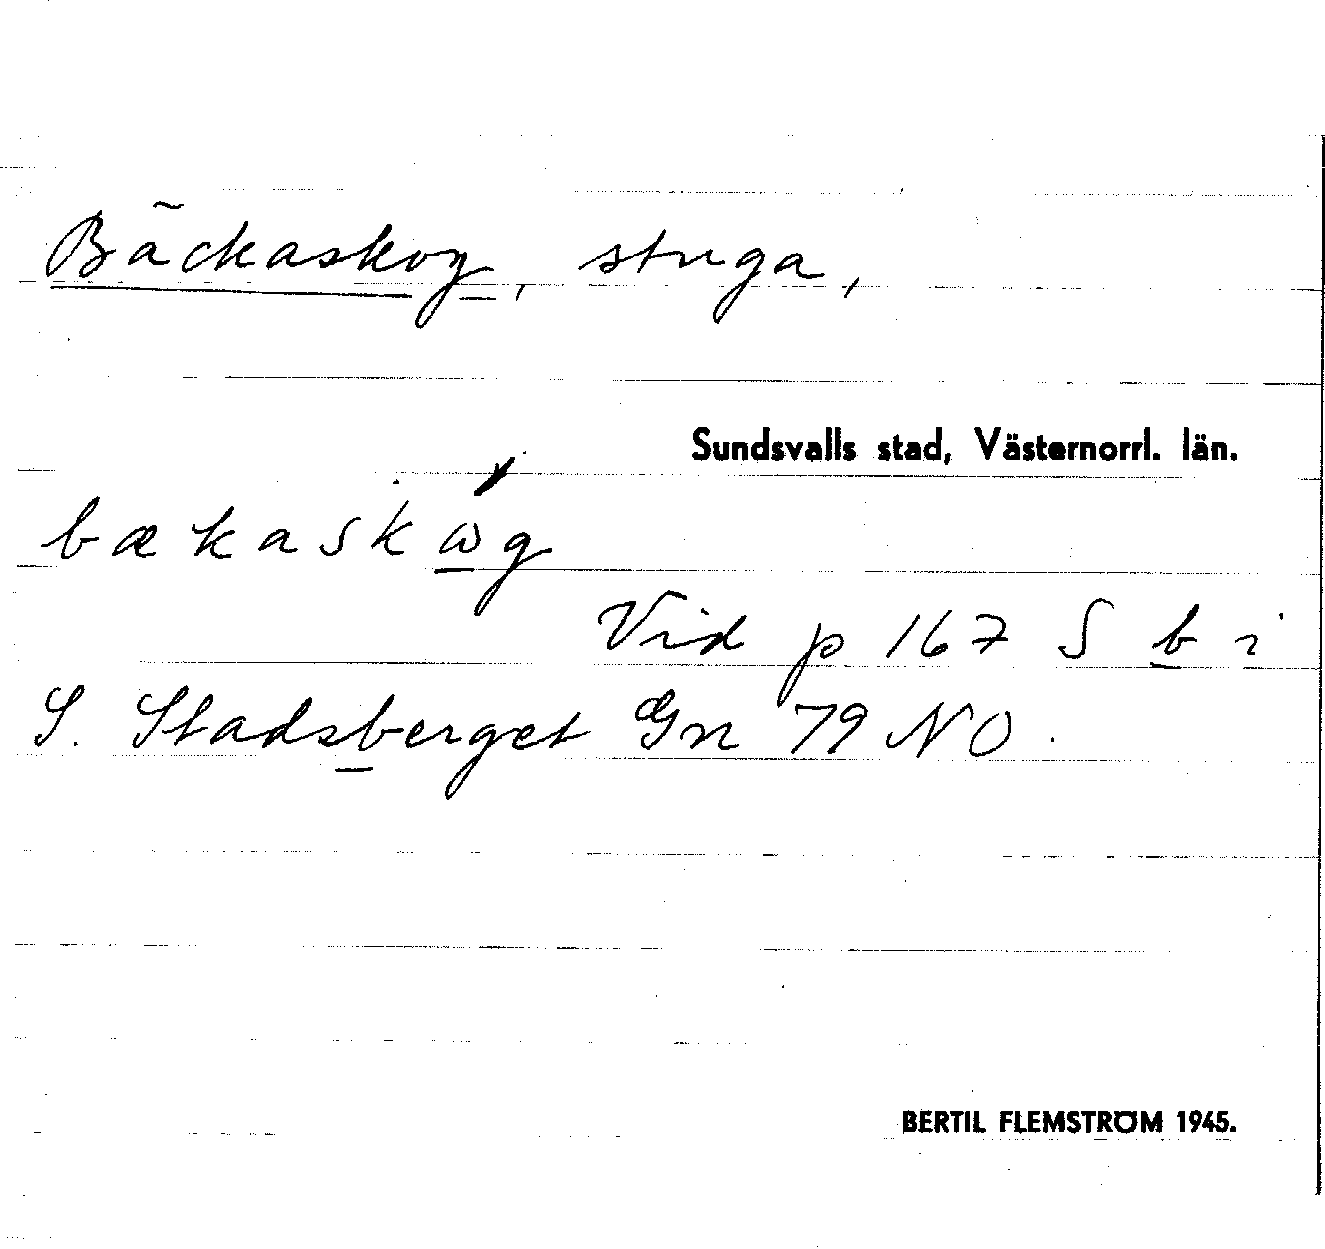 Bäckaskog, stuga,
Sundsvalls stad, Västernorrl. län.
bækaskώg
Vid p 167 S b i
S. Stadsberget Gn 79 NO.
BERTIL FLEMSTRÖM 1945.